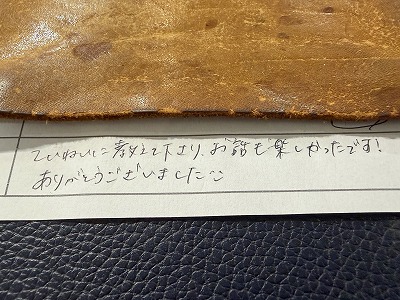 ていねいに教えて下さり、お話も楽しかったです!
ありがとうございました